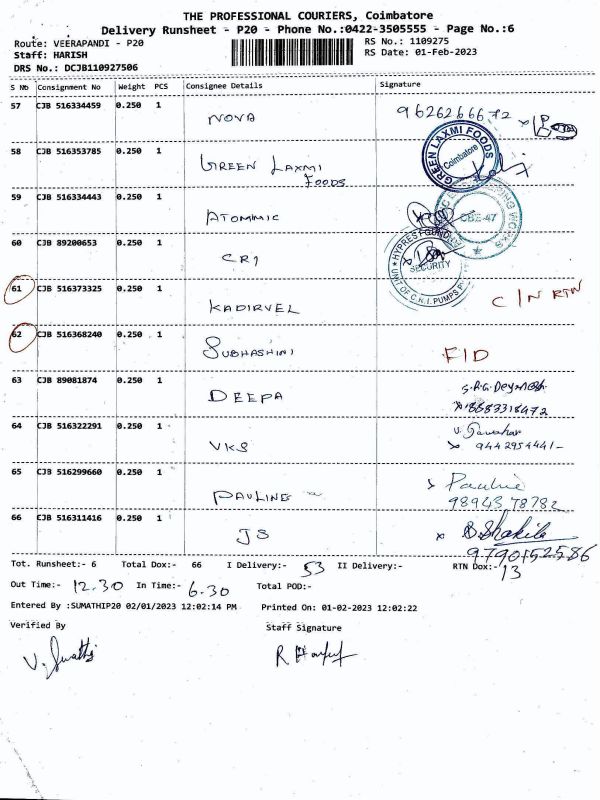 THE PROFESSIONAL COURIERS, Coimbatore
Delivery Runsheet - P20 - Phone No.:0422-3505555 - Page No.:6
Route: VEERAPANDI - P20
RS No.: 1109275
Staff: HARISH
RS Date: 01-Feb-2023
DRS No.: DCJB110927506
S Nb Consignment No Weight PCS Consignee Details Signature
57 CJB 516334459 0.250 1 NOVA 9626266672
58 CJB 516353785 0.250 1 GREEN LAXMI FOODS
GREEN LAXMI FOODS
Coimbatore
59 CJB 516334443 0.250 1 ATOMMIC
CBE-47
60 CJB 89200653 0.250 1 CRI
SECURITY
UNIT OF C.R.I. PUMPS
61 CJB 516373325 0.250 1 KADIRVEL C/N RTN
62 CJB 516368240 0.250 1 SUBHASHINI FID
63 CJB 89081874 0.250 1 DEEPA
64 CJB 516322291 0.250 1 VKS
9442954441-
65 CJB 516299660 0.250 1 PAULINE Pauline
9894378782
66 CJB 516311416 0.250 1 JS B. Shakila
9790152586
Tot. Runsheet:- 6 Total Dox:- 66 I Delivery:- 53 II Delivery:- RTN Dox:- 13
Out Time:- 12.30 In Time:- 6.30 Total POD:-
Entered By :SUMATHIP20 02/01/2023 12:02:14 PM Printed On: 01-02-2023 12:02:22
Verified By Staff Signature